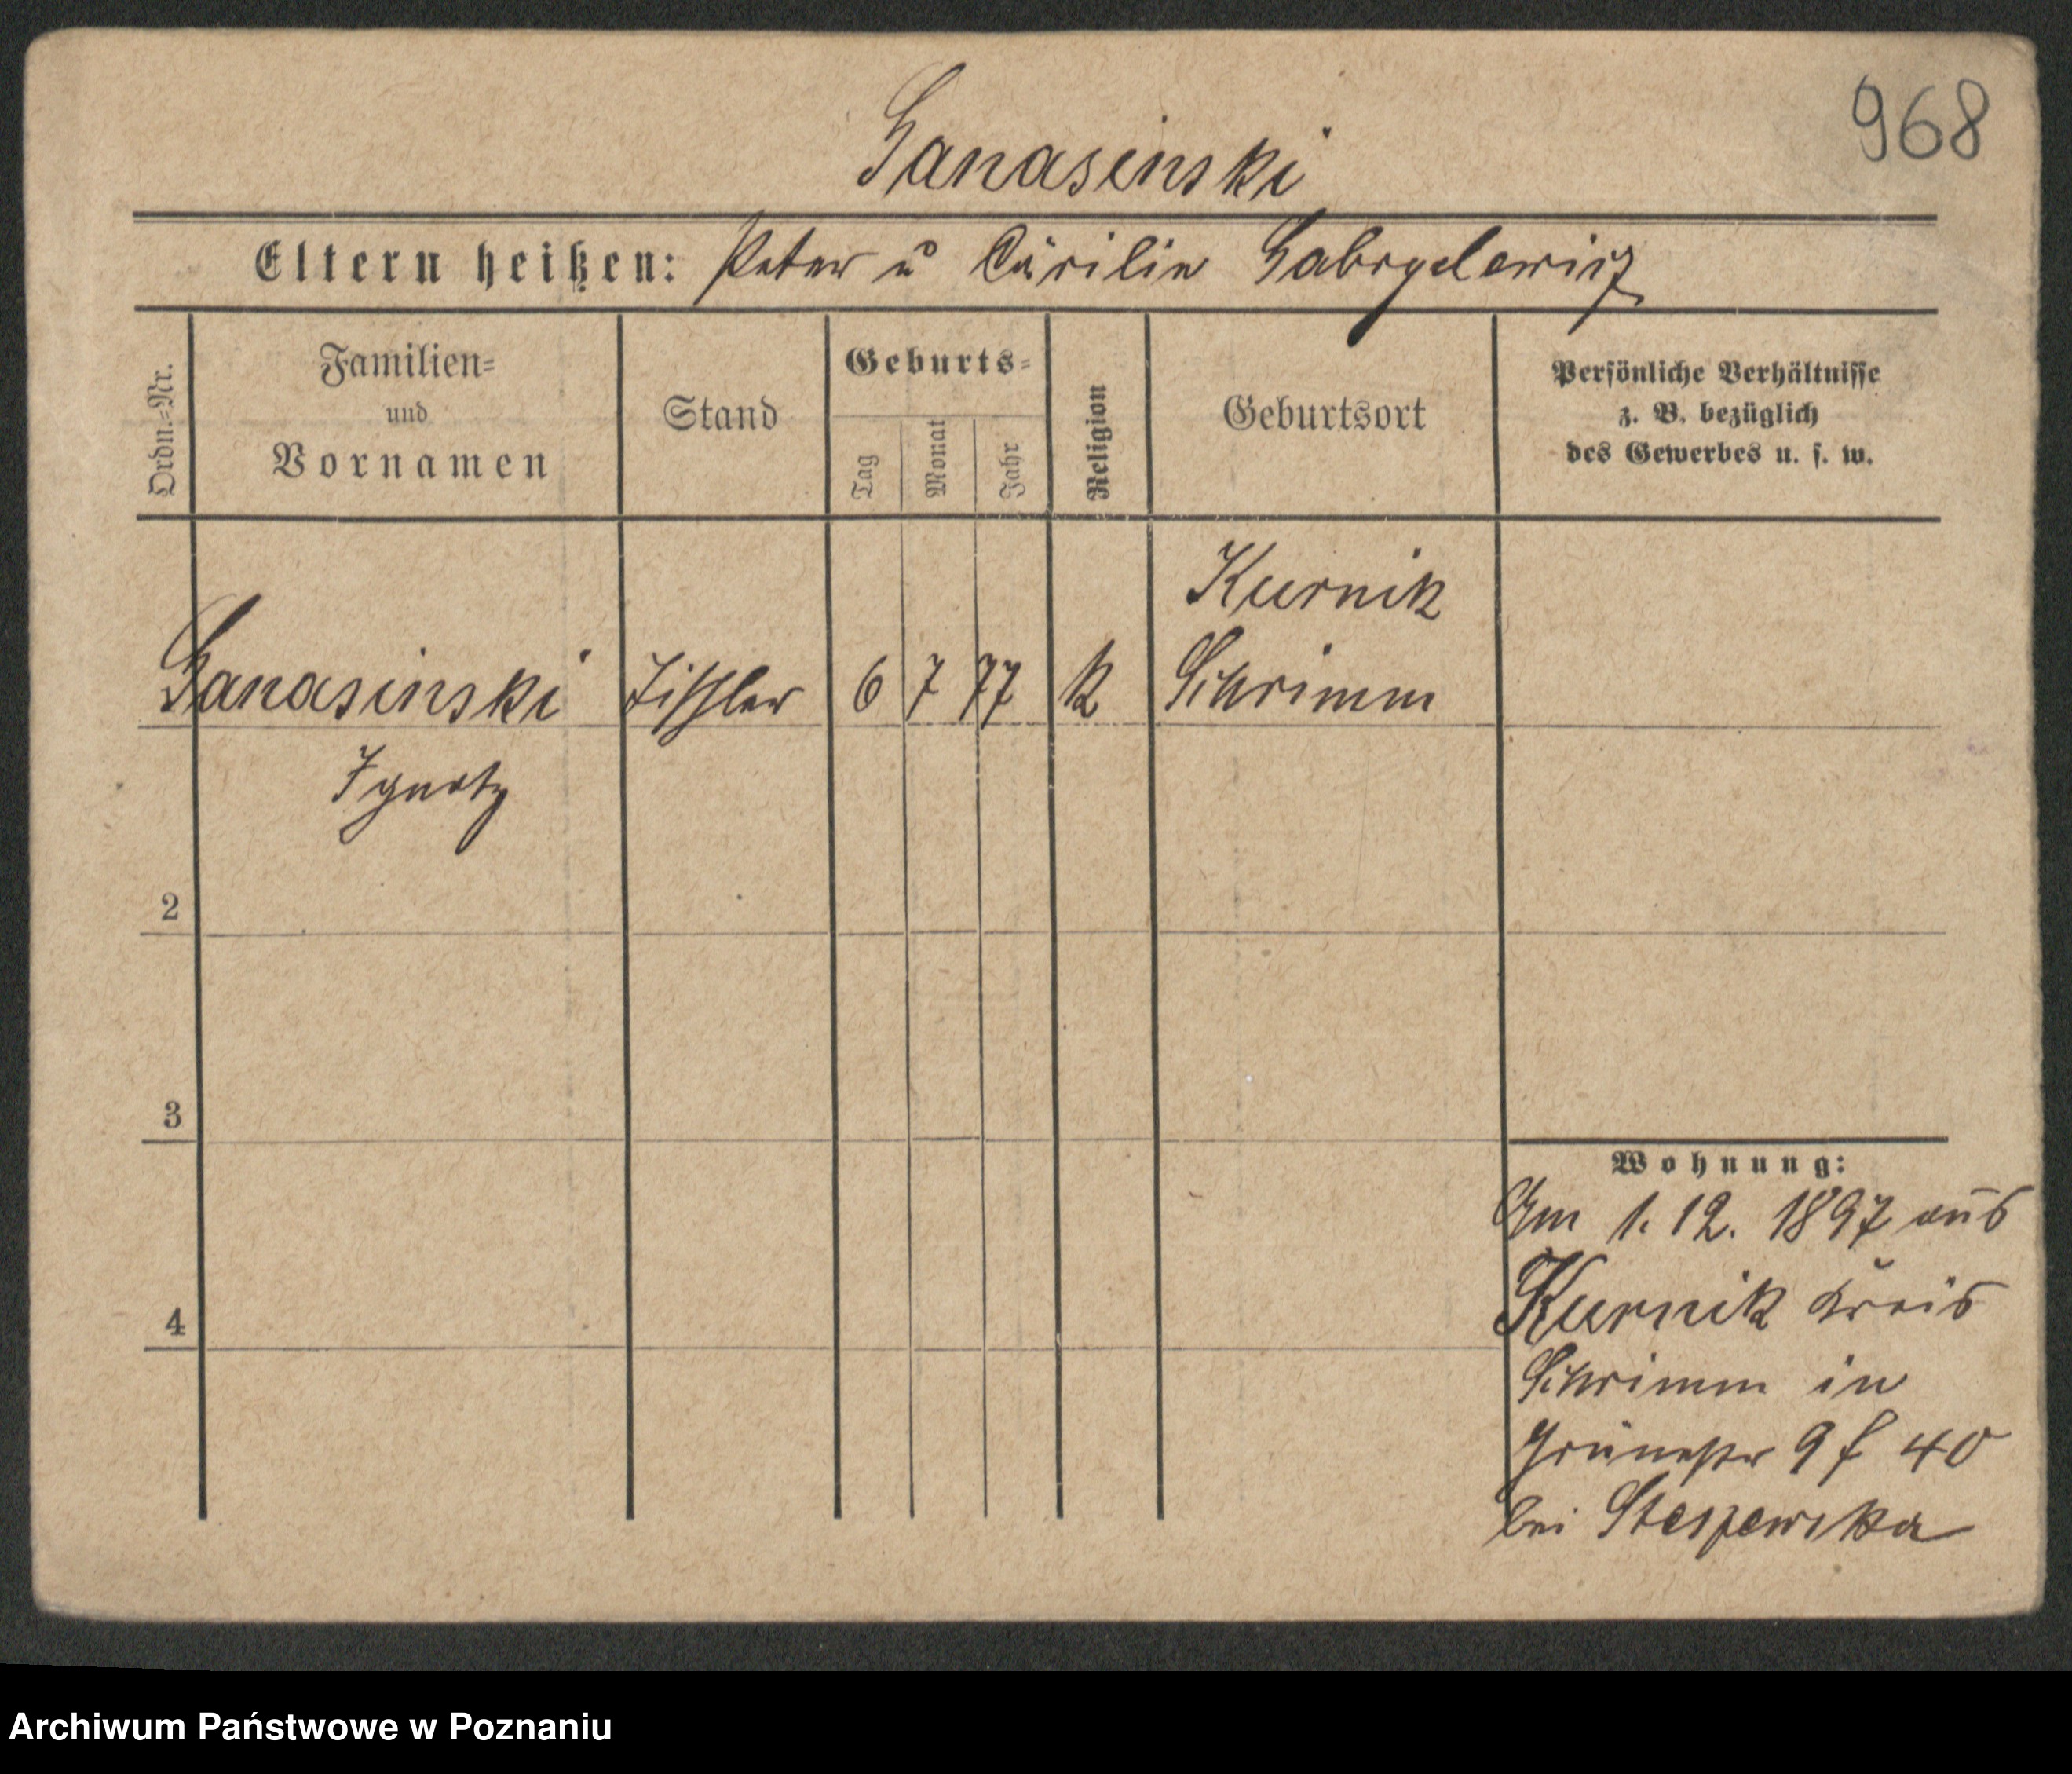 968
Ganasinski
Eltern heißen: Peter u Cäcilie Gabryelewicz
Ordn.=Nr.
Familien=
und
Vornamen
Stand
Geburts=
Tag
Monat
Jahr
Religion
Geburtsort
Persönliche Verhältnisse
z. B. bezüglich
des Gewerbes u. s. w.
Kurnik
Ganasinski Tischler 6 7 77 K Schrimm
Ignatz
2
3
4
Wohnung:
Am 1. 12. 1897 aus
Kurnik Kreis
Schrimm in
Grünestr 9 f 40
bei Steszewska
Archiwum Państwowe w Poznaniu